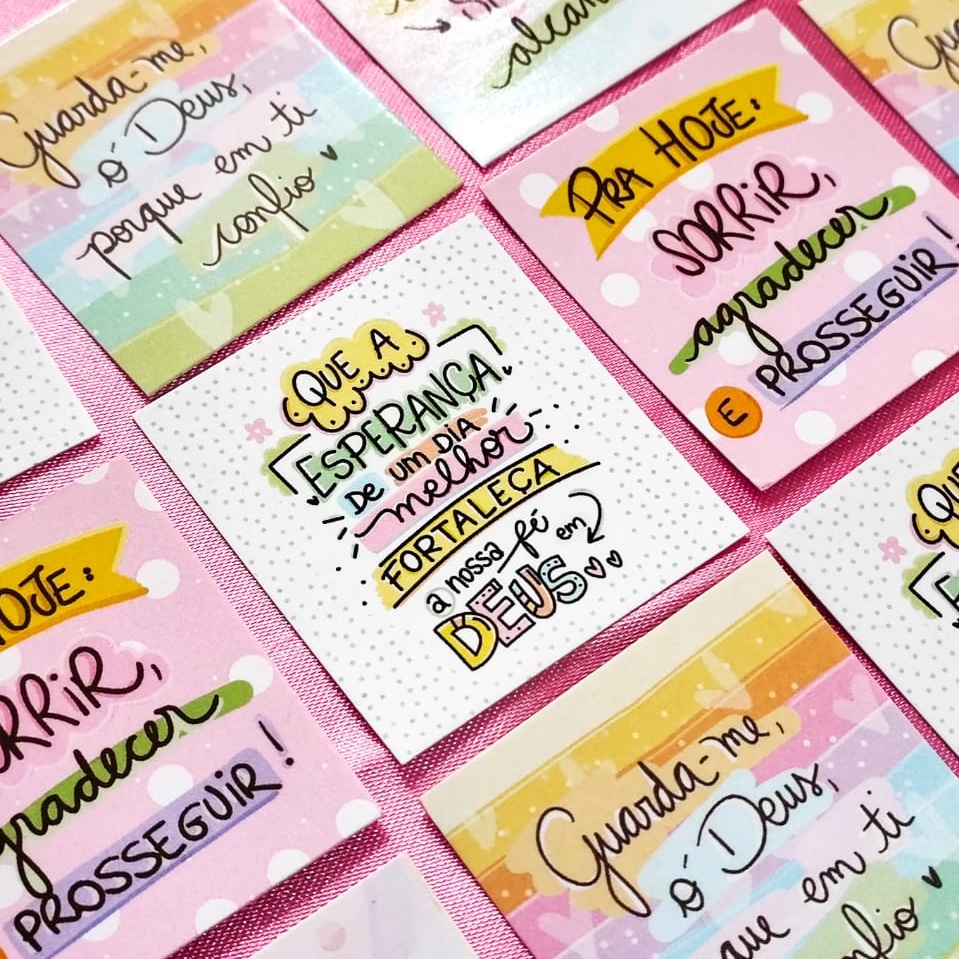 Guarda-me,
ó Deus,
porque em ti
confio
PRA HOJE:
SORRIR,
agradecer
E PROSSEGUIR!
QUE A
ESPERANÇA
DE um DIA
melhor
FORTALEÇA
a nossa fé em
DEUS
HOJE:
SORRIR,
agradecer
PROSSEGUIR!
Guarda-me,
ó Deus,
que em ti
nfio